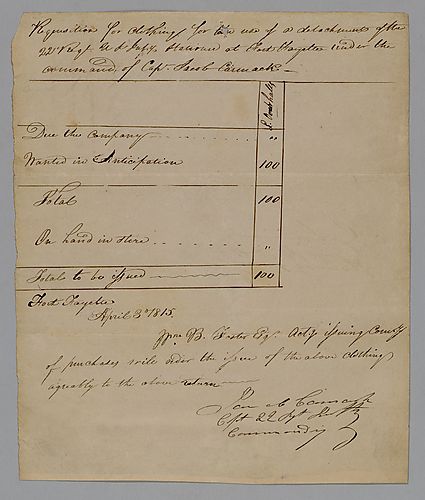 Requisition for clothing for the use of a detachment of the
22d Regt U S Infy Stationed at Fort Fayette under the
command of Capt Jacob Carmack —
Due the company "
Wanted in Anticipation 100
Total 100
On hand in store "
Total to be issued 100
Fort Fayette
April 3d 1815
Wm B. Foster Esq. Actg issuing Comsy
of purchases will order the issue of the above clothing
agreably to the above return
Jacob Carmack
Cpt 22 Rgt
Commandg